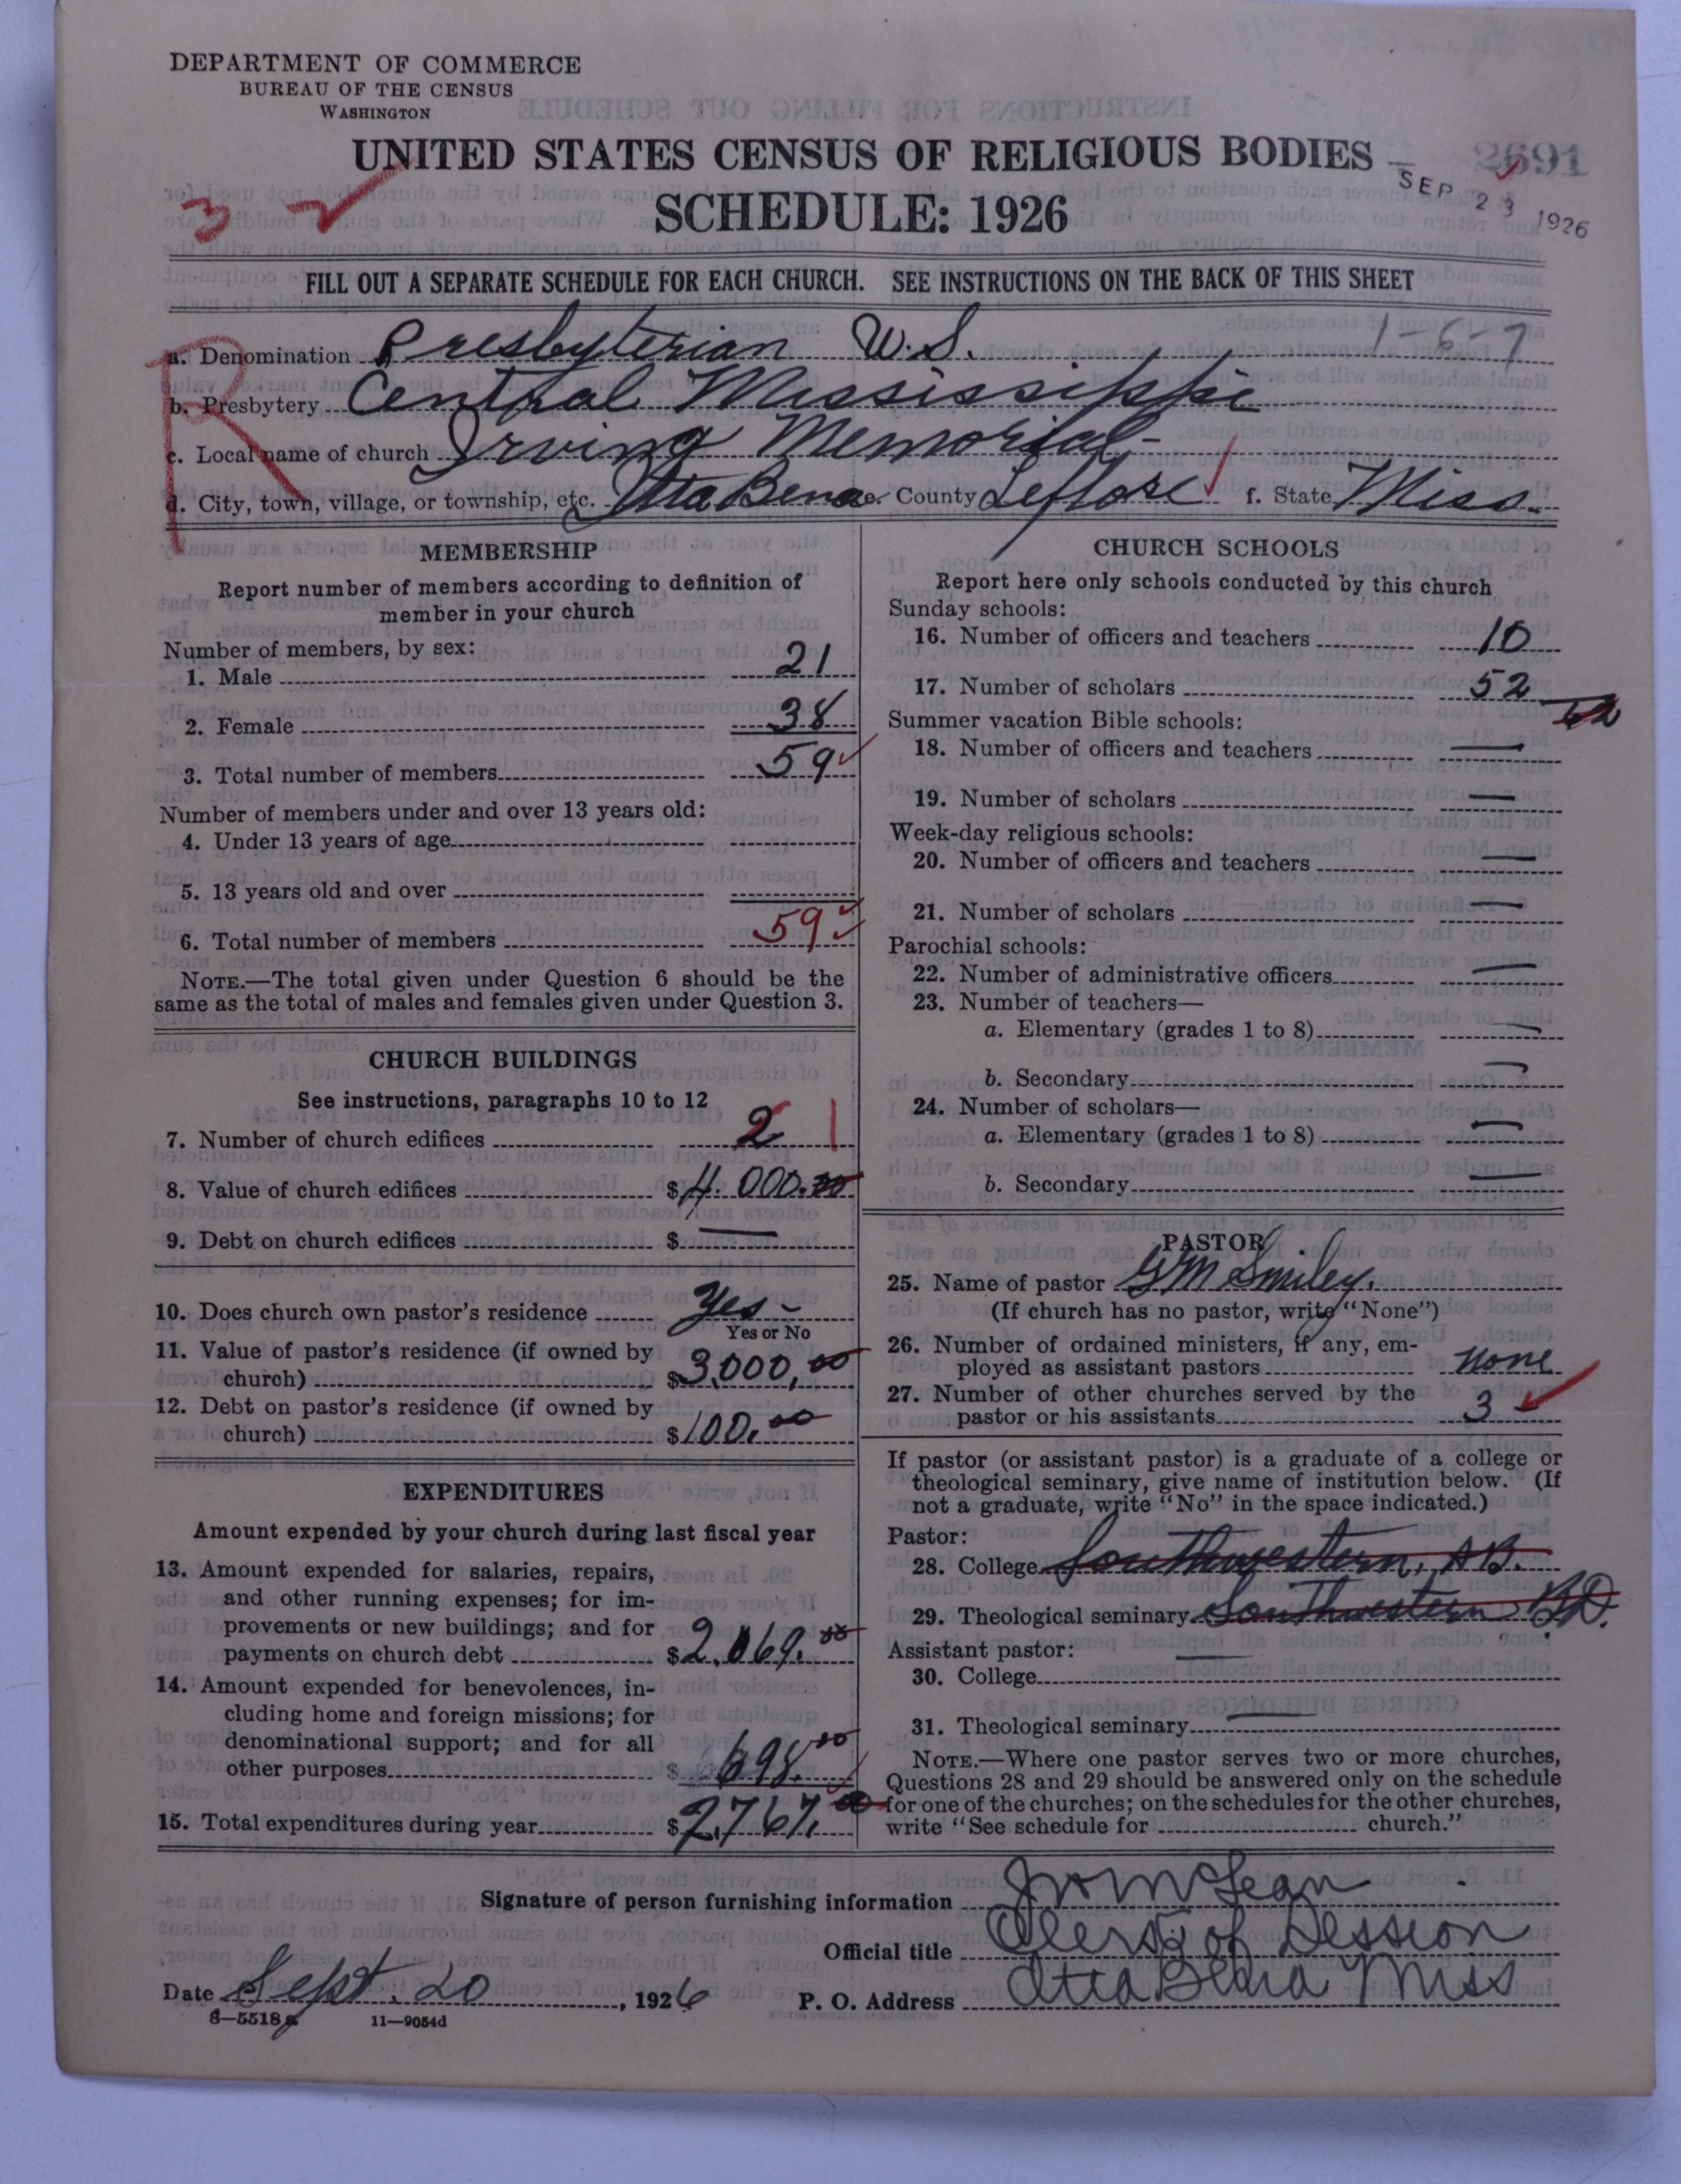 DEPARTMENT OF COMMERCE
BUREAU OF THE CENSUS
WASHINGTON
UNITED STATES CENSUS OF RELIGIOUS BODIES
2691
SEP 23 1926
SCHEDULE: 1926
3
FILL OUT A SEPARATE SCHEDULE FOR EACH CHURCH. SEE INSTRUCTIONS ON THE BACK OF THIS SHEET
R
a. Denomination Presbyterian U.S. 1-6-7
b. Presbytery Central Mississippi
c. Local name of church Irving Memorial-
d. City, town, village, or township, etc. Itta Bena e. County Leflore f. State Miss.
MEMBERSHIP
Report number of members according to definition of
member in your church
Number of members, by sex:
1. Male 21
2. Female 38
3. Total number of members 59
Number of members under and over 13 years old:
4. Under 13 years of age
5. 13 years old and over
6. Total number of members 59
NOTE.—The total given under Question 6 should be the
same as the total of males and females given under Question 3.
CHURCH BUILDINGS
See instructions, paragraphs 10 to 12
7. Number of church edifices 2 1
8. Value of church edifices $4.000.00
9. Debt on church edifices $ —
10. Does church own pastor's residence Yes -
Yes or No
11. Value of pastor's residence (if owned by
church) $3,000,00
12. Debt on pastor's residence (if owned by
church) $100.00
EXPENDITURES
Amount expended by your church during last fiscal year
13. Amount expended for salaries, repairs,
and other running expenses; for im-
provements or new buildings; and for
payments on church debt $2,069.00
14. Amount expended for benevolences, in-
cluding home and foreign missions; for
denominational support; and for all
other purposes $ 698.00
15. Total expenditures during year $2,767.00
CHURCH SCHOOLS
Report here only schools conducted by this church
Sunday schools:
16. Number of officers and teachers 10
17. Number of scholars 52
62
Summer vacation Bible schools:
18. Number of officers and teachers —
19. Number of scholars —
Week-day religious schools:
20. Number of officers and teachers —
21. Number of scholars —
Parochial schools:
22. Number of administrative officers —
23. Number of teachers—
a. Elementary (grades 1 to 8) —
b. Secondary —
24. Number of scholars—
a. Elementary (grades 1 to 8) —
b. Secondary —
PASTOR
25. Name of pastor G M Smiley.
(If church has no pastor, write "None")
26. Number of ordained ministers, if any, em-
ployed as assistant pastors none
27. Number of other churches served by the
pastor or his assistants 3
If pastor (or assistant pastor) is a graduate of a college or
theological seminary, give name of institution below. (If
not a graduate, write "No" in the space indicated.)
Pastor:
28. College Southwestern, A B.
29. Theological seminary Southwestern BD.
Assistant pastor: —
30. College
31. Theological seminary —
NOTE.—Where one pastor serves two or more churches,
Questions 28 and 29 should be answered only on the schedule
for one of the churches; on the schedules for the other churches,
write "See schedule for church."
Signature of person furnishing information McLean
Official title Clerk of Session
Date Sept. 20, 1926 P. O. Address Itta Bena Miss
8—5518a 11—9054d